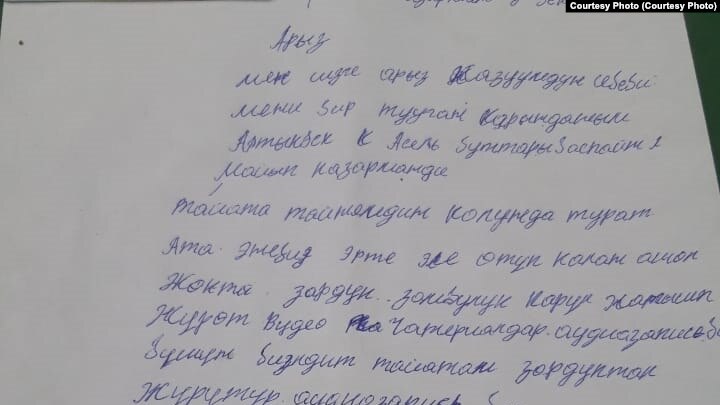 Courtesy Photo (Courtesy Photo)
Арыз
мен сизге арыз жазуумдун себеби
мени бир тууган карындашым
Артыкбек к Асель буттары баспайт 2
Майып казарманде
тайата тайнемдин колунда турат
Ата энеииз эрте эле отуп калат ошон
Жокта зордук зомбулук корул жатышып
Журот видео материалдар аудиозапись
Бугун биздин тайатам зордуктап
Журуптур аудиозапись